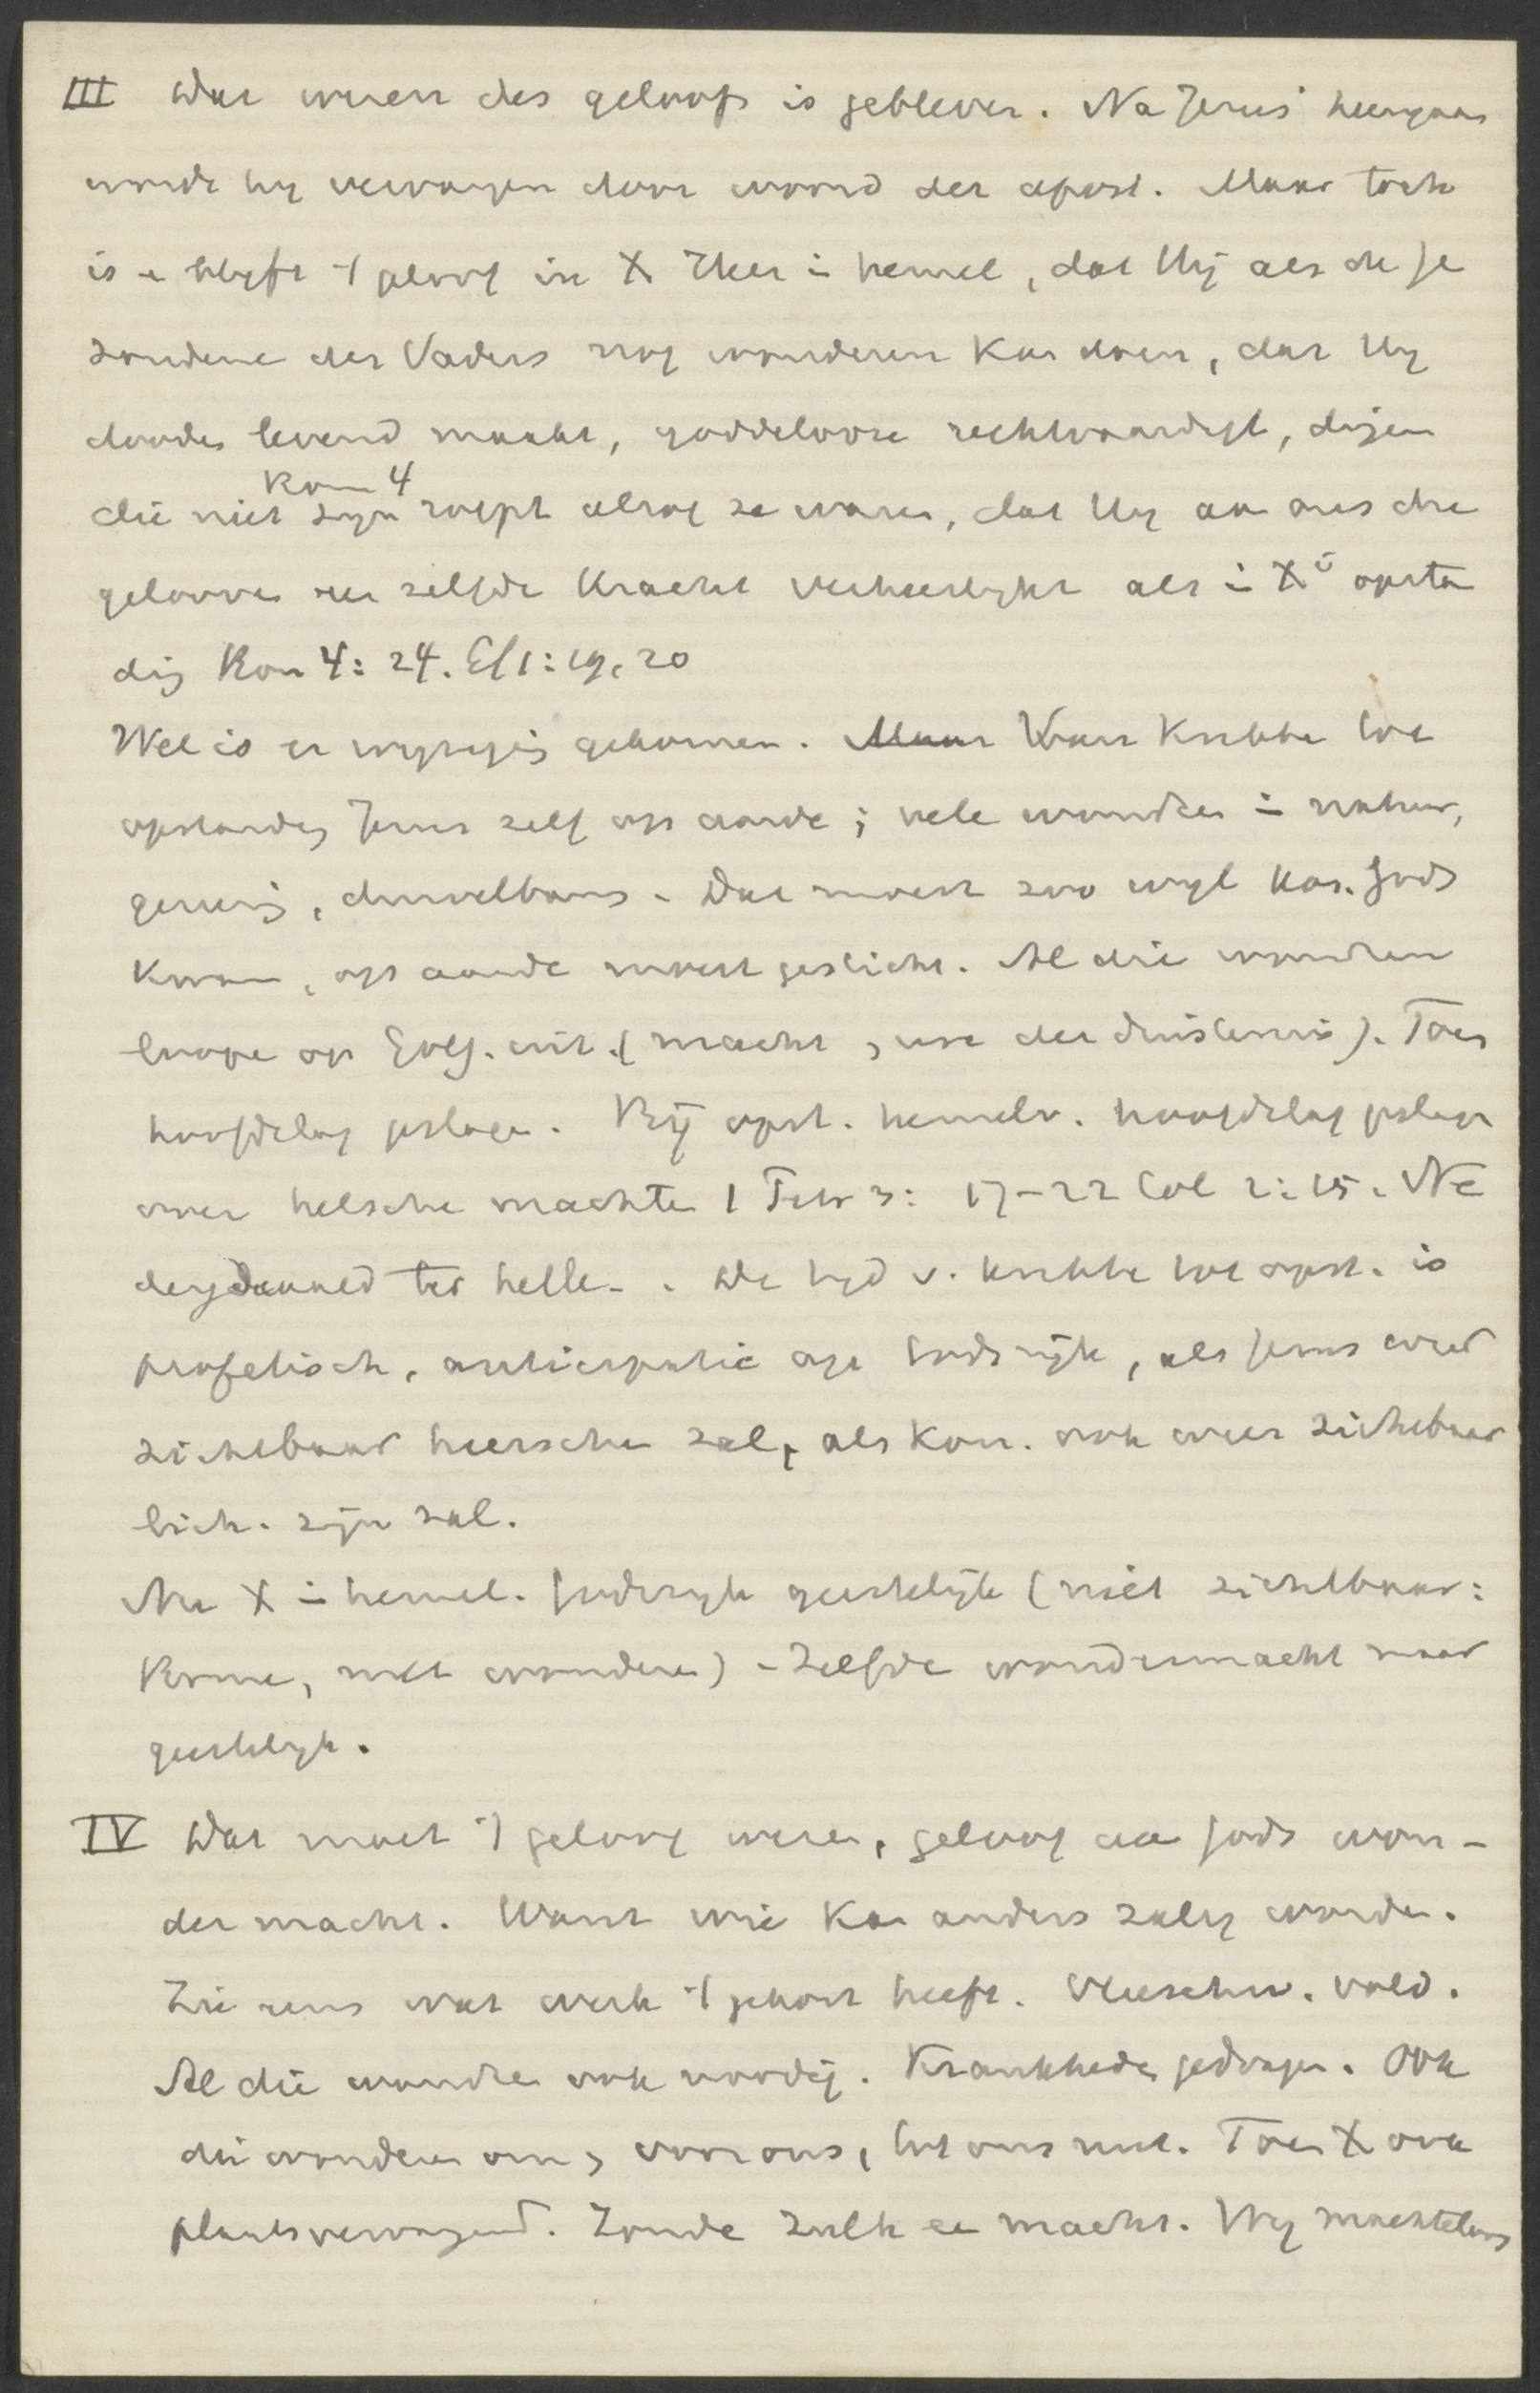 III Dat wezen des geloofs is gebleven. Na Jezus' heengaan
werd hij vervangen door woord der apost. Maar toch
is en blijft 't geloof in X Heer in hemel, dat Hij als de ge
zondene des Vaders nog wonderen kan doen, dat Hij
dooden levend maakt, goddelooze rechtvaardigt, dingen
Rom 4
die niet zijn roept alsof ze waren, dat Hij aan ons die
gelooven zelfde kracht verheerlijkt als in X' opstan
dig Rom 4: 24. Ef 1: 19, 20
Wel is er wijziging gekomen. Maar Van Kribbe tot
opstanding Jezus zelf op aarde; vele wonderen in natuur,
genezing, duivelbann. Dat moest zoo wijl Kon. Gods
kwam, op aarde moest gesticht. Al die wonderen
loopen op Golg. uit. (macht, ure der duisternis). Toen
hoofdslag geslagen. Bij opst. hemelv. hoofdslag geslagen
over helsche machten 1 Petr 3: 17-22 Col 2: 15. Ne
dergedaald ter helle. De tijd v. kribbe tot opst. is
profetisch, anticipatie op Godsrijk, als Jezus weer
zichtbaar heerschen zal, als Kon. ook weer zichtbaar
lich. zijn zal.
Nu X in hemel. Godsrijk geestelijk (niet zichtbaar:
Rome, met wonderen) - Zelfde wondermacht maar
geestelijk.
IV Dat moet 't geloof wezen, geloof aan Gods won-
dermacht. Want wie kan anders zalig worden.
Zie eens wat werk 't gekost heeft. Vleeschw. vold.
Al die wonderen ook noodig. Krankheden gedragen. Ook
die wonderen om, voor ons, tot ons nut. Toen X ook
plaatsvervangend. Zonde zulk een macht. Wij machteloos